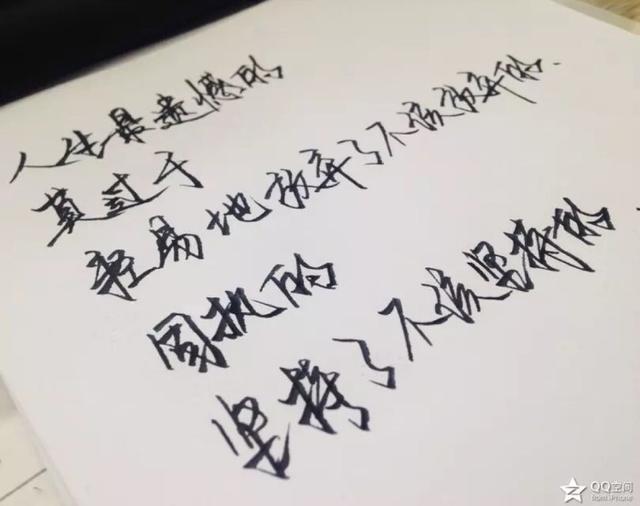 人生最遗憾的
莫过于
轻易地放弃了不该放弃的.
固执的
坚持了不该坚持的.
QQ空间
from iPhone